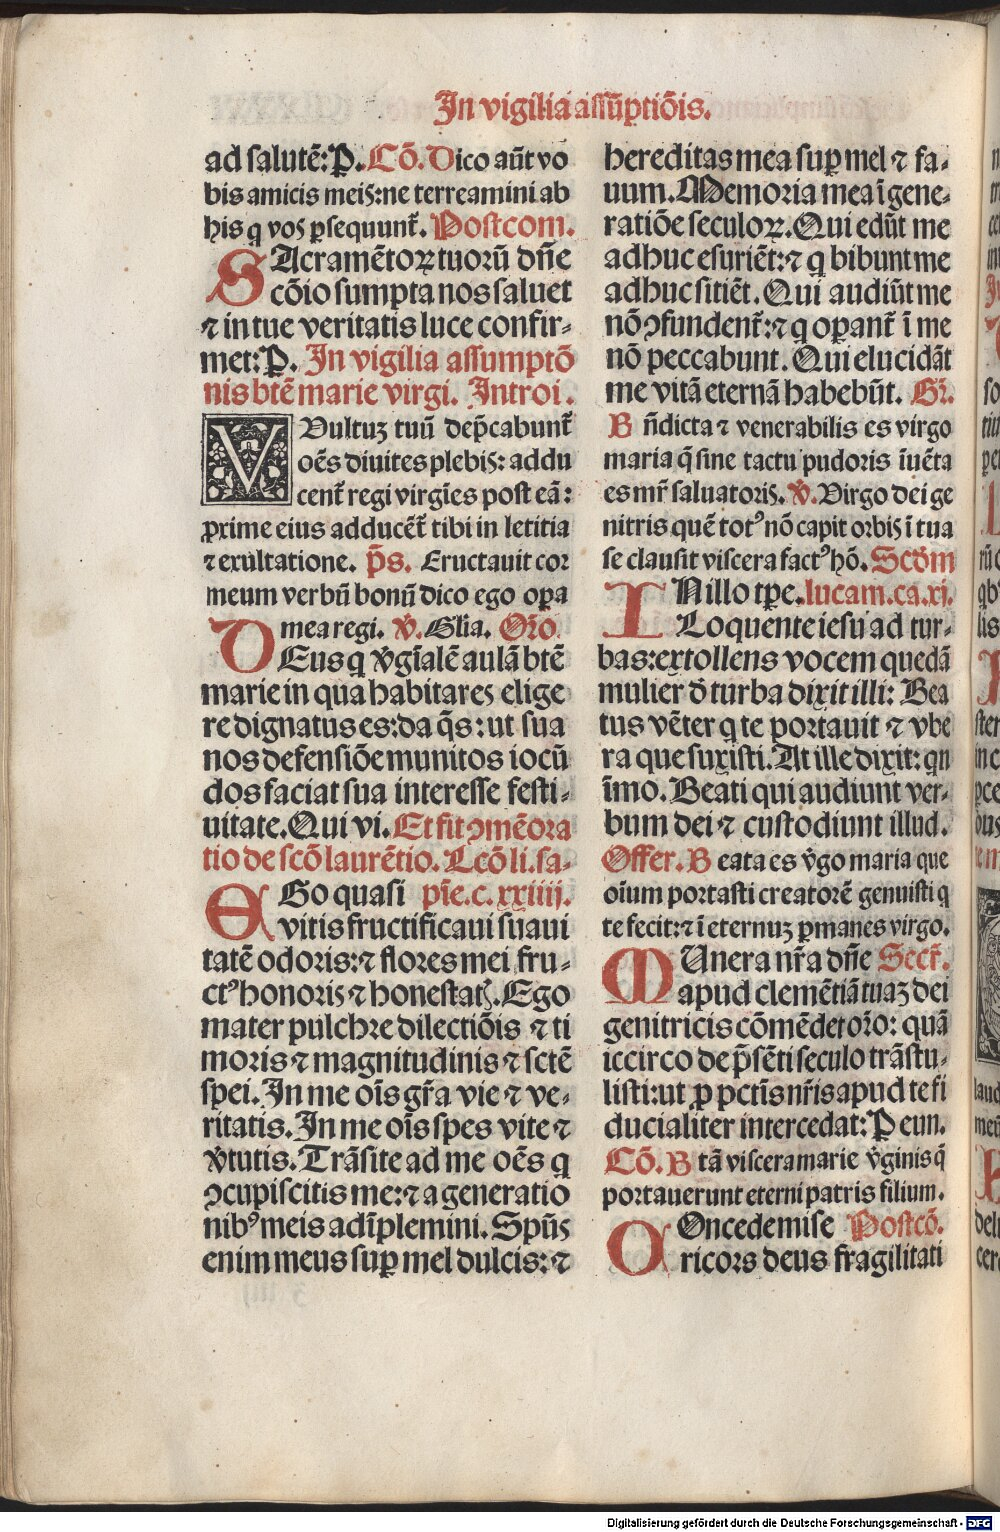 In vigilia assũptiõis.
ad salutẽ: P. Cõ. Dico aũt vo
bis amicis meis: ne terreamini ab
his q̃ vos ꝑsequunt̃. Postcom.
SAcramẽtoꝝ tuorũ dñe
cõio sumpta nos saluet
⁊ in tue veritatis luce confir-
met: P. In vigilia assumptõ
nis btẽ marie virgi. Introi.
VUultuꝫ tuũ dep̃cabunt̃
oẽs diuites plebis: addu
cent̃ regi virgĩes post eã:
ꝓxime eius adducẽt̃ tibi in letitia
⁊ exultatione. p̃s. Eructauit cor
meum verbũ bonũ dico ego oꝑa
mea regi. ℣. Glia. Oro.
DEus q̃ v̾gĩalẽ aulã btẽ
marie in qua habitares elige
re dignatus es: da q̃s: ut sua
nos defensiõe munitos iocũ
dos faciat sua interesse festi-
uitate. Qui vi. Et fit ꝯmẽora
tio de scõ laurẽtio. Lcõ li. sa-
EGo quasi pĩe. c. xxiiij.
vitis fructificaui suaui
tatẽ odoris: ⁊ flores mei fru-
ctꝰ honoris ⁊ honestatꝭ. Ego
mater pulchre dilectiõis ⁊ ti
moris ⁊ magnitudinis ⁊ sctẽ
spei. In me oĩs gr̃a vie ⁊ ve-
ritatis. In me oĩs spes vite ⁊
v̾tutis. Trãsite ad me oẽs q̃
ꝯcupiscitis me: ⁊ a generatio
nibꝰ meis adĩplemini. Spũs
enim meus suꝑ mel dulcis: ⁊
hereditas mea suꝑ mel ⁊ fa-
uum. Memoria mea ĩ gene-
ratiõe seculoꝝ. Qui edũt me
adhuc esuriẽt: ⁊ q̃ bibunt me
adhuc sitiẽt. Qui audiũt me
nõ ꝯfundent̃: ⁊ q̃ oꝑant̃ ĩ me
nõ peccabunt. Qui elucidãt
me vitã eternã habebũt. Gr̃.
Bñdicta ⁊ venerabilis es virgo
maria q̃ sine tactu pudoris ĩuẽta
es mr̃ saluatoris. ℣. Virgo dei ge
nitris quẽ totꝰ nõ capit orbis ĩ tua
se clausit viscera factꝰ hõ. Scdm
INillo tꝑe. lucam. ca. xi.
Loquente iesu ad tur-
bas: extollens vocem quedã
mulier d̾ turba dixit illi: Bea
tus vẽter q̃ te portauit ⁊ vbe
ra que suxisti. At ille dixit: qñ
ĩmo. Beati qui audiunt ver-
bum dei ⁊ custodiunt illud.
Offer. Beata es v̾go maria que
oĩum portasti creatorẽ genuisti q̃
te fecit: ⁊ ĩ eternuꝫ ꝑmanes virgo.
MUnera nr̃a dñe Secr̃.
apud clemẽtiã tuaꝫ dei
genitricis cõmẽdet oro: quã
iccirco de p̃sẽti seculo trãstu-
listi: ut ꝓ pctĩs nr̃is apud te fi
ducialiter intercedat: P eun.
Cõ. Btã viscera marie v̾ginis q̃
portauerunt eterni patris filium.
COncede mise Postcõ.
ricors deus fragilitati
Digitalisierung gefördert durch die Deutsche Forschungsgemeinschaft - DFG